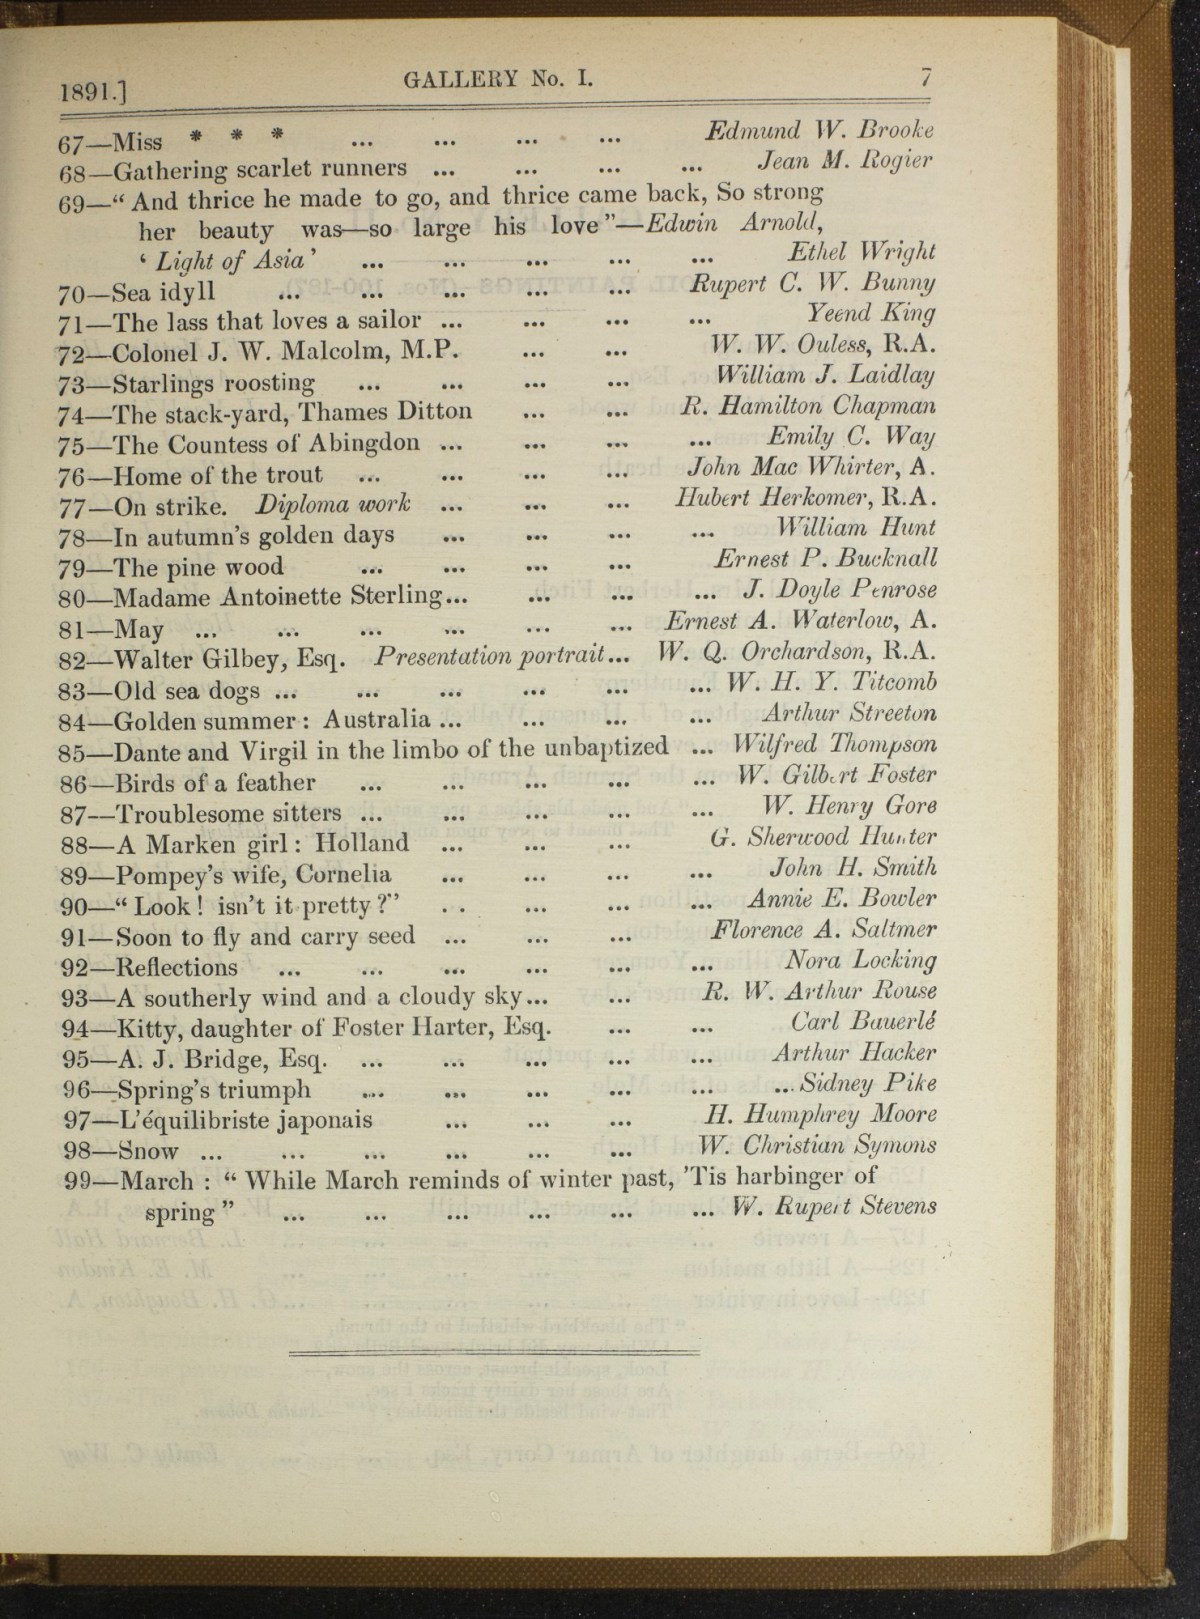 1891.] GALLERY No. I. 7
67—Miss * * * ... ... ... ... Edmund W. Brooke
68—Gathering scarlet runners ... ... ... ... Jean M. Rogier
69—“ And thrice he made to go, and thrice came back, So strong
her beauty was—so large his love ”—Edwin Arnold,
‘ Light of Asia ’ ... ... ... ... ... Ethel Wright
70—Sea idyll ... ... ... ... ... Rupert C. W. Bunny
71—The lass that loves a sailor ... ... ... ... Yeend King
72—Colonel J. W. Malcolm, M.P. ... ... W. W. Ouless, R.A.
73—Starlings roosting ... ... ... ... William J. Laidlay
74—The stack-yard, Thames Ditton ... ... R. Hamilton Chapman
75—The Countess of Abingdon ... ... ... ... Emily C. Way
76—Home of the trout ... ... ... ... John Mac Whirter, A.
77—On strike. Diploma work ... ... ... Hubert Herkomer, R.A.
78—In autumn’s golden days ... ... ... ... William Hunt
79—The pine wood ... ... ... ... Ernest P. Bucknall
80—Madame Antoinette Sterling... ... ... ... J. Doyle Penrose
81—May ... ... ... ... ... ... Ernest A. Waterlow, A.
82—Walter Gilbey, Esq. Presentation portrait... W. Q. Orchardson, R.A.
83—Old sea dogs ... ... ... ... ... ... W. H. Y. Titcomb
84—Golden summer : Australia ... ... ... ... Arthur Streeton
85—Dante and Virgil in the limbo of the unbaptized ... Wilfred Thompson
86—Birds of a feather ... ... ... ... ... W. Gilbert Foster
87—Troublesome sitters ... ... ... ... ... W. Henry Gore
88—A Marken girl : Holland ... ... ... G. Sherwood Hunter
89—Pompey’s wife, Cornelia ... ... ... ... John H. Smith
90—“ Look ! isn’t it pretty ?” . . ... ... ... Annie E. Bowler
91—Soon to fly and carry seed ... ... ... Florence A. Saltmer
92—Reflections ... ... ... ... ... ... Nora Locking
93—A southerly wind and a cloudy sky... ... R. W. Arthur Rouse
94—Kitty, daughter of Foster Harter, Esq. ... ... Carl Bauerlé
95—A. J. Bridge, Esq. ... ... ... ... ... Arthur Hacker
96—Spring’s triumph ... ... ... ... ... ... Sidney Pike
97—L’équilibriste japonais ... ... ... H. Humphrey Moore
98—Snow ... ... ... ... ... ... W. Christian Symons
99—March : “ While March reminds of winter past, ’Tis harbinger of
spring ” ... ... ... ... ... ... W. Rupert Stevens